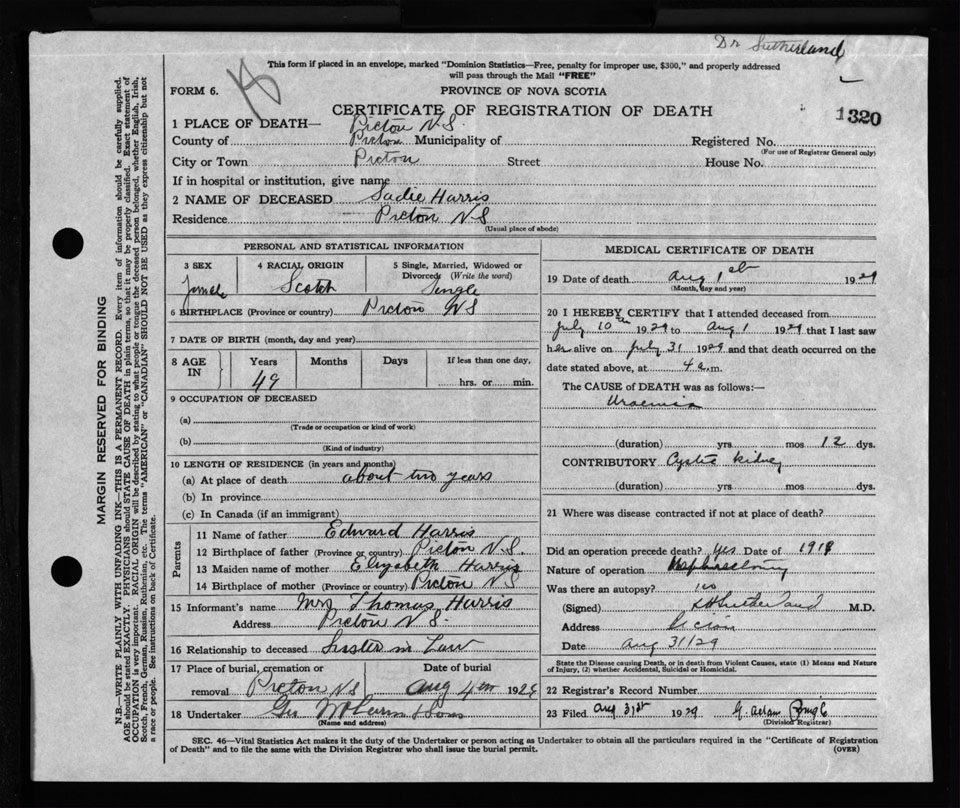 Dr Sutherland
This form if placed in an envelope, marked "Dominion Statistics—Free, penalty for improper use, $300," and properly addressed
will pass through the Mail "FREE"
FORM 6.
PROVINCE OF NOVA SCOTIA
CERTIFICATE OF REGISTRATION OF DEATH
1320
1 PLACE OF DEATH— Pictou N.S.
County of Pictou Municipality of Registered No.
(For use of Registrar General only)
City or Town Pictou Street House No.
If in hospital or institution, give name
2 NAME OF DECEASED Sadie Harris
Residence Pictou N S
(Usual place of abode)
PERSONAL AND STATISTICAL INFORMATION
3 SEX 4 RACIAL ORIGIN 5 Single, Married, Widowed or
Divorced (Write the word)
Female Scotch Single
6 BIRTHPLACE (Province or country) Pictou NS
7 DATE OF BIRTH (month, day and year)
8 AGE IN Years Months Days If less than one day,
49 hrs. or min.
9 OCCUPATION OF DECEASED
(a)
(Trade or occupation or kind of work)
(b)
(Kind of industry)
10 LENGTH OF RESIDENCE (in years and months)
(a) At place of death about two years
(b) In province
(c) In Canada (if an immigrant)
Parents
11 Name of father Edward Harris
12 Birthplace of father (Province or country) Pictou N.S.
13 Maiden name of mother Elizabeth Harris
14 Birthplace of mother (Province or country) Pictou NS
15 Informant's name Mrs Thomas Harris
Address Pictou N S.
16 Relationship to deceased Sister in Law
17 Place of burial, cremation or Date of burial
removal Pictou NS Aug 4th 1929
18 Undertaker & Sons
(Name and address)
MEDICAL CERTIFICATE OF DEATH
19 Date of death Aug 1st 1929
(Month, day and year)
20 I HEREBY CERTIFY that I attended deceased from
July 10th 1929 to Aug 1 1929 that I last saw
her alive on July 31 1929 and that death occurred on the
date stated above, at 4 a.m.
The CAUSE of DEATH was as follows:—
Uraemia
(duration) yrs mos 12 dys.
CONTRIBUTORY Cystic kidney
(duration) yrs mos dys.
21 Where was disease contracted if not at place of death?
Did an operation precede death? Yes Date of 1918
Nature of operation Nephrectomy
Was there an autopsy? no
(Signed) Sutherland M.D.
Address Pictou
Date Aug 31/29
State the Disease causing Death, or in death from Violent Causes, state (1) Means and Nature
of Injury, (2) whether Accidental, Suicidal or Homicidal.
22 Registrar's Record Number
23 Filed Aug 31st 1929 G. Adam
(Division Registrar)
SEC. 46—Vital Statistics Act makes it the duty of the Undertaker or person acting as Undertaker to obtain all the particulars required in the "Certificate of Registration
of Death" and to file the same with the Division Registrar who shall issue the burial permit. (OVER)
MARGIN RESERVED FOR BINDING
N.B.—WRITE PLAINLY WITH UNFADING INK—THIS IS A PERMANENT RECORD. Every item of information should be carefully supplied.
AGE should be stated EXACTLY. PHYSICIANS should STATE CAUSE OF DEATH in plain terms, so that it may be properly classified. Exact statement of
OCCUPATION is very important. RACIAL ORIGIN will be described by stating to what people or tongue the deceased person belonged, whether English, Irish,
Scotch, French, German, Russian, Ruthenian, etc. The terms "AMERICAN" or "CANADIAN" SHOULD NOT BE USED as they express citizenship but not
a race or people. See instructions on back of Certificate.